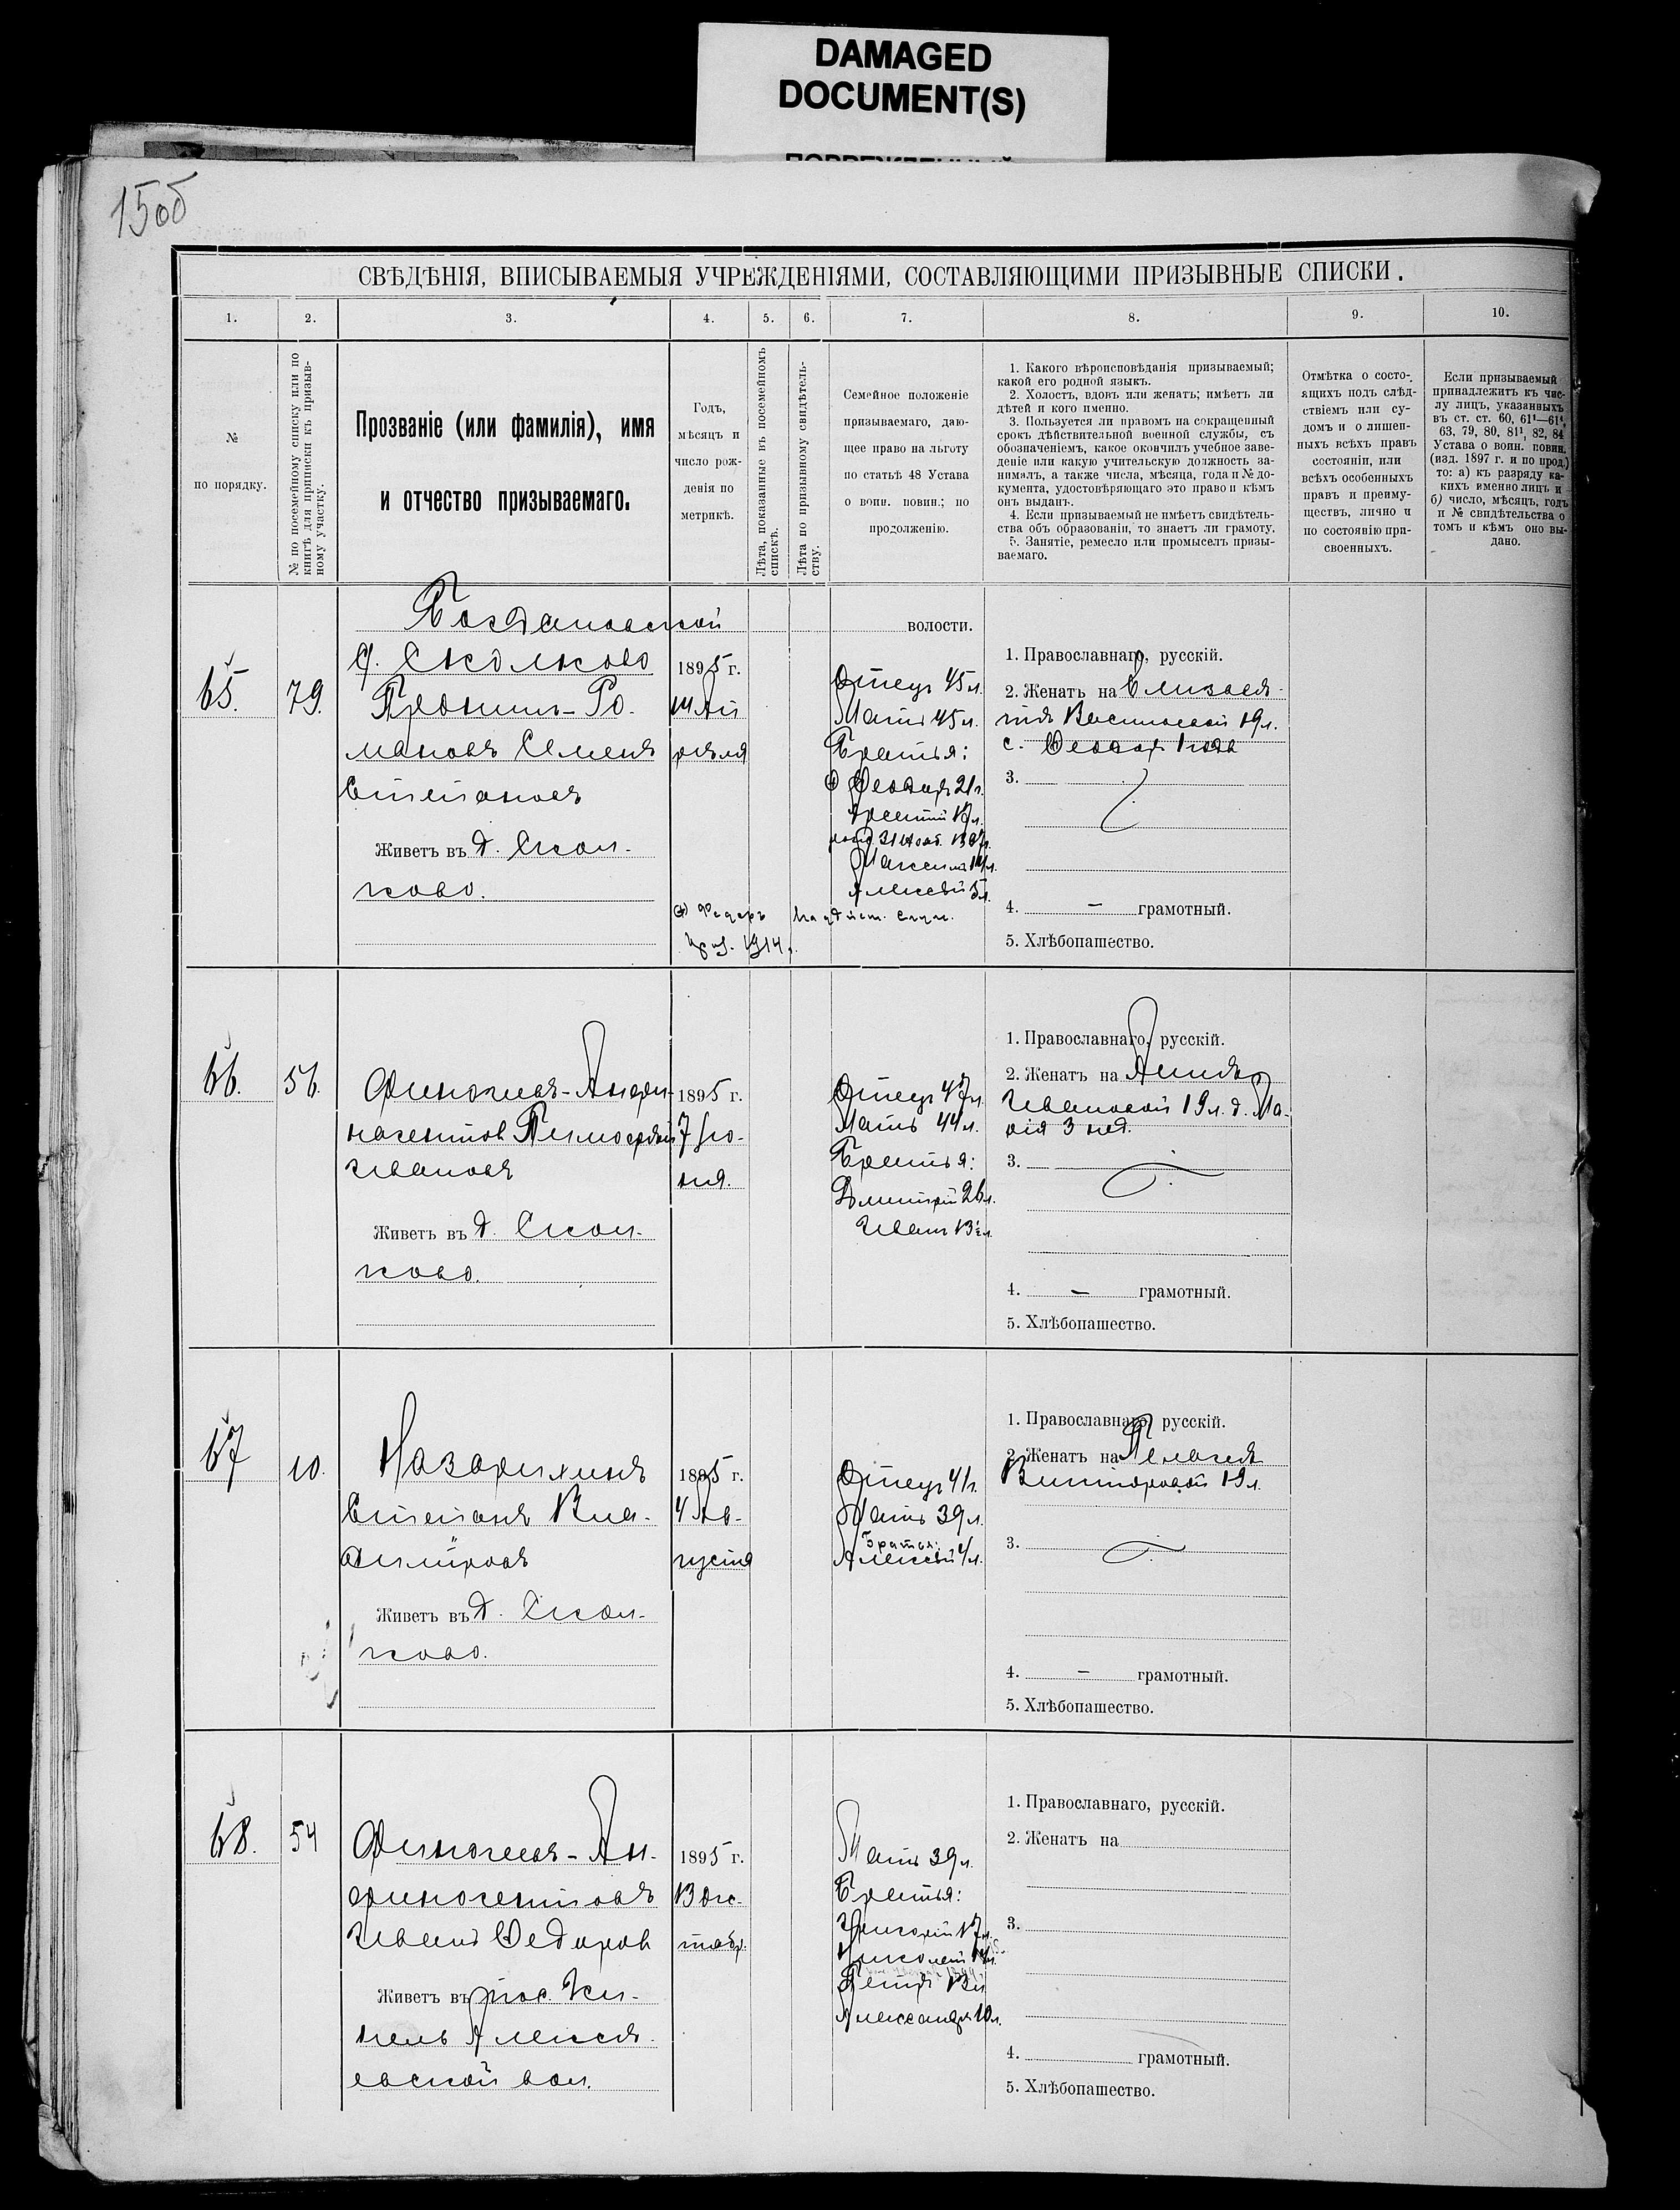 DAMAGED
DOCUMENT(S)
15об
СВѢДѢНІЯ, ВПИСЫВАЕМЫЯ УЧРЕЖДЕНІЯМИ, СОСТАВЛЯЮЩИМИ ПРИЗЫВНЫЕ СПИСКИ.
1. 2. 3. 4. 5. 6. 7. 8. 9. 10.
№
по порядку.
№ по посемейному списку или по
книгѣ для приписки къ призыв-
ному участку.
Прозваніе (или фамилія), имя
и отчество призываемаго.
Годъ,
мѣсяцъ и
число рож-
денія по
метрикѣ.
Лѣта, показанные въ посемейномъ
спискѣ.
Лѣта по призывному свидѣтель-
ству.
Семейное положеніе
призываемаго, даю-
щее право на льготу
по статьѣ 48 Устава
о воин. повин.; по
продолженію.
1. Какого вѣроисповѣданія призываемый;
какой его родной языкъ.
2. Холостъ, вдовъ или женатъ; имѣетъ ли
дѣтей и кого именно.
3. Пользуется ли правомъ на сокращенный
срокъ дѣйствительной военной службы, съ
обозначеніемъ, какое окончилъ учебное заве-
деніе или какую учительскую должность за-
нималъ, а также числа, мѣсяца, года и № до-
кумента, удостовѣряющаго это право и кѣмъ
онъ выданъ.
4. Если призываемый не имѣетъ свидѣтель-
ства объ образованіи, то знаетъ ли грамоту.
5. Занятіе, ремесло или промыселъ призы-
ваемаго.
Отмѣтка о состо-
ящихъ подъ слѣд-
ствіемъ или су-
домъ и о лишен-
ныхъ всѣхъ правъ
состоянія, или
всѣхъ особенныхъ
правъ и преиму-
ществъ, лично и
по состоянію при-
своенныхъ.
Если призываемый
принадлежитъ къ чис-
лу лицъ, указанныхъ
въ ст. ст. 60, 61¹—61⁴,
63, 79, 80, 81¹, 82, 84
Устава о воин. повин.
(изд. 1897 г. и по прод.)
то: а) къ разряду ка-
кихъ именно лицъ и
б) число, мѣсяцъ, годъ
и № свидѣтельства о
томъ и кѣмъ оно вы-
дано.
Богдановской волости.
65. 79.
Сколково
Ро-
мановъ Семенъ
Степановъ
Живетъ въ д. Скол-
ково.
1895 г.
14 Ап
рѣля
Отецъ 45 л.
Мать 45 л.
Братья:
Феодоръ 21 г.
Максимъ 14 л.
Алексѣй 5 л.
Федоръ на дѣйст. служ.
1914 г.
1. Православнаго, русскій.
2. Женатъ на Елизаве-
тѣ Васильевой 19 л.
с. Феодоръ 1 года
3.
4. — грамотный.
5. Хлѣбопашество.
66. 56.
Финогеевъ-Анфи-
ногентов Тимофей
Ивановъ
Живетъ въ д. Скол-
ково.
1895 г.
7 Ію-
ня.
Отецъ 47 л.
Мать 44 л.
Братья:
Дмитрій 26 л.
Иванъ 13½ л.
1. Православнаго, русскій.
2. Женатъ на Аннѣ
Ивановой 19 л. д. Ма-
рія 3 нед.
3.
4. — грамотный.
5. Хлѣбопашество.
67 10.
Назарихинъ
Степанъ Вла-
диміровъ
Живетъ въ д. Скол-
ково.
1895 г.
4 Ав-
густа
Отецъ 41 г.
Мать 39 л.
Братья:
Алексѣй 4 л.
1. Православнаго, русскій.
2. Женатъ на Пелагеѣ
Викторовой 19 л.
3.
4. — грамотный.
5. Хлѣбопашество.
68. 54
Финогеевъ-Ан-
финогентовъ
Иванъ Федоров
Живетъ въ пос. Ки-
нель Алексѣ-
евской вол.
1895 г.
13 Ок-
тябр.
Мать 39 л.
Братья:
Григорій 17 л.
Николай
Петръ 13 л.
Александръ 10 л.
1. Православнаго, русскій.
2. Женатъ на
3.
4. грамотный.
5. Хлѣбопашество.